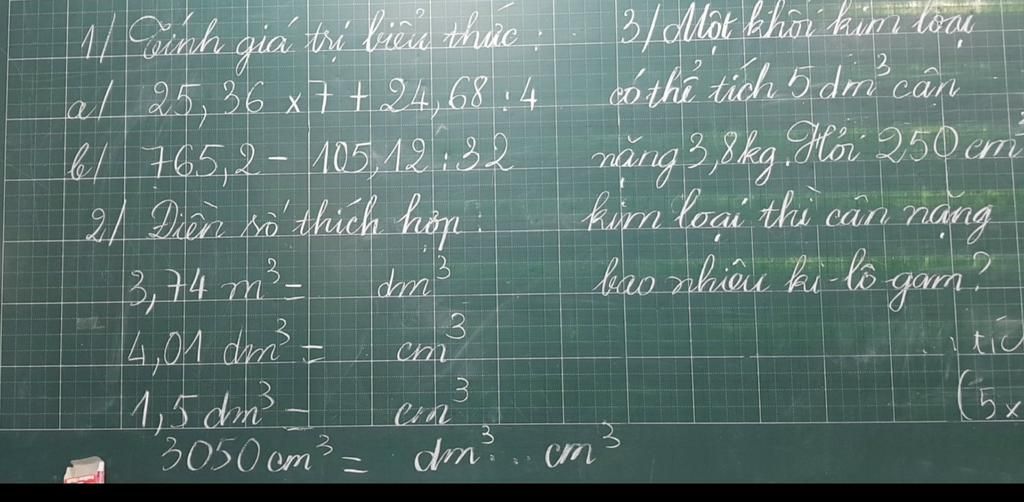 1/ Tính giá trị biểu thức:
a/ 25,36 x 7 + 24,68 : 4
b/ 765,2 - 105,12 : 32
2/ Điền số thích hợp:
3,74 m³ = dm³
4,01 dm³ = cm³
1,5 dm³ = cm³
3050 cm³ = dm³... cm³
3/ Một khối kim loại
có thể tích 5 dm³ cân
nặng 3,8kg. Hỏi 250 cm³
kim loại thì cân nặng
bao nhiêu ki-lô gam?
tíc
(5x